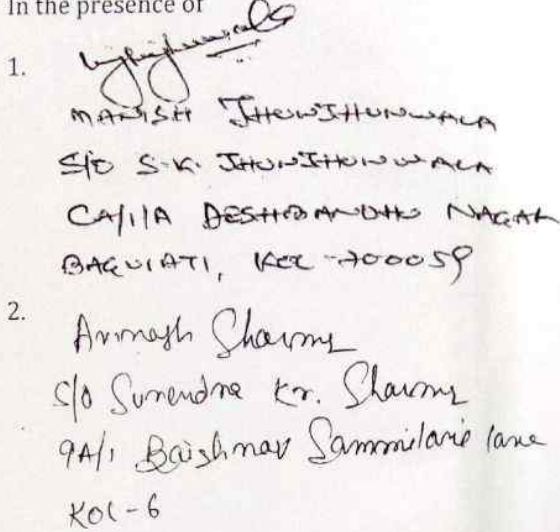 In the presence of
1.
MANISH JHUNJHUNWALA
S/O S.K. JHUNJHUNWALA
CA/1/A DESHBANDHU NAGAR
BAGUIATI, KOL-700059
2.
Avinash Sharma
S/o Surendra Kr. Sharma
9A/1 Baishnav Sammilani lane
KOL-6